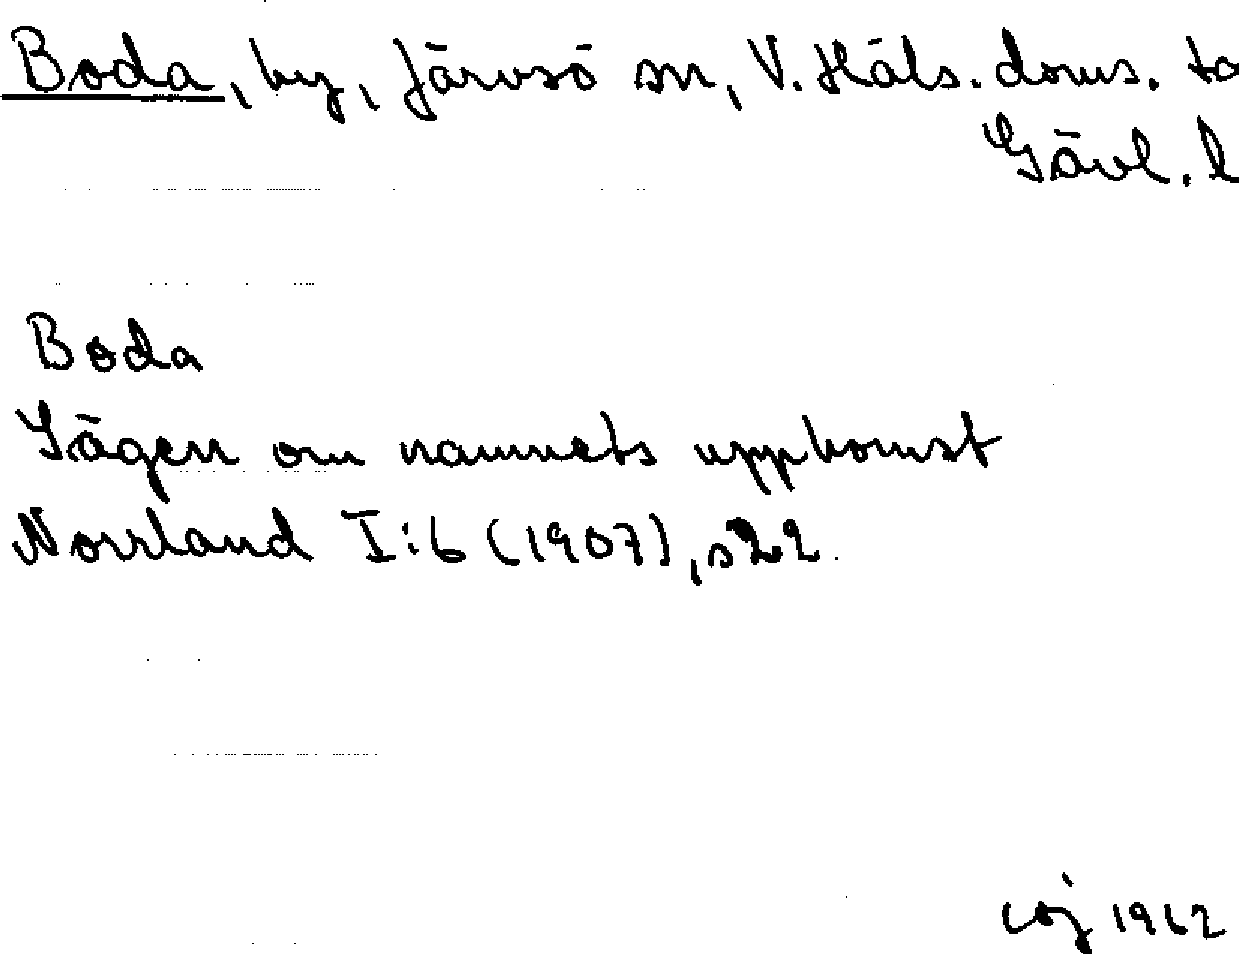 Boda, by, Järvsö sn, V. Häls. doms. to
Gävl. l
Boda
Sägen om namnets uppkomst
Norrland I:6 (1907), s 22.
coj 1962